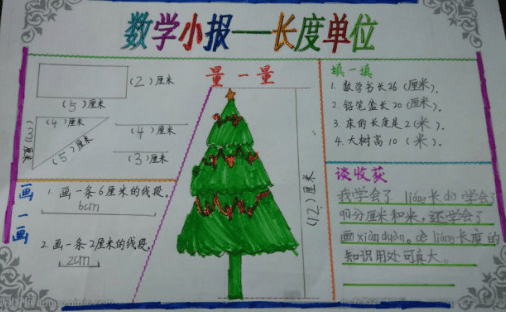 数学小报—长度单位
量一量
(2)厘米
(5)厘米
(4)厘米
(5)厘米
(4)厘米
(3)厘米
画一画
1.画一条6厘米的线段。
6cm
2.画一条2厘米的线段。
2cm
(12)厘米
填一填
1.数学书长26(厘米)。
2.铅笔盒长20(厘米)。
3.床的长度是2(米)。
4.大树高10(米)。
谈收获
我学会了liáng长度学会了
明分厘米和米,还学会了
画xiànduàn。liáng长度的
知识用处可真大。